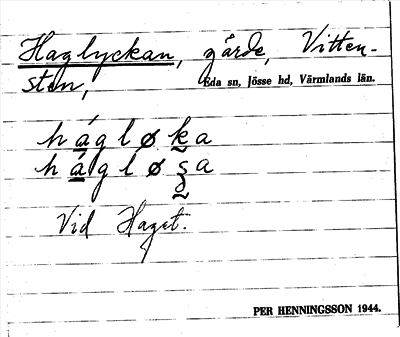 Haglyckan, gärde, Vitten-
sten,
Eda sn, Jösse hd, Värmlands län.
hágløka
hágløʂa
Vid Haget.
PER HENNINGSSON 1944.